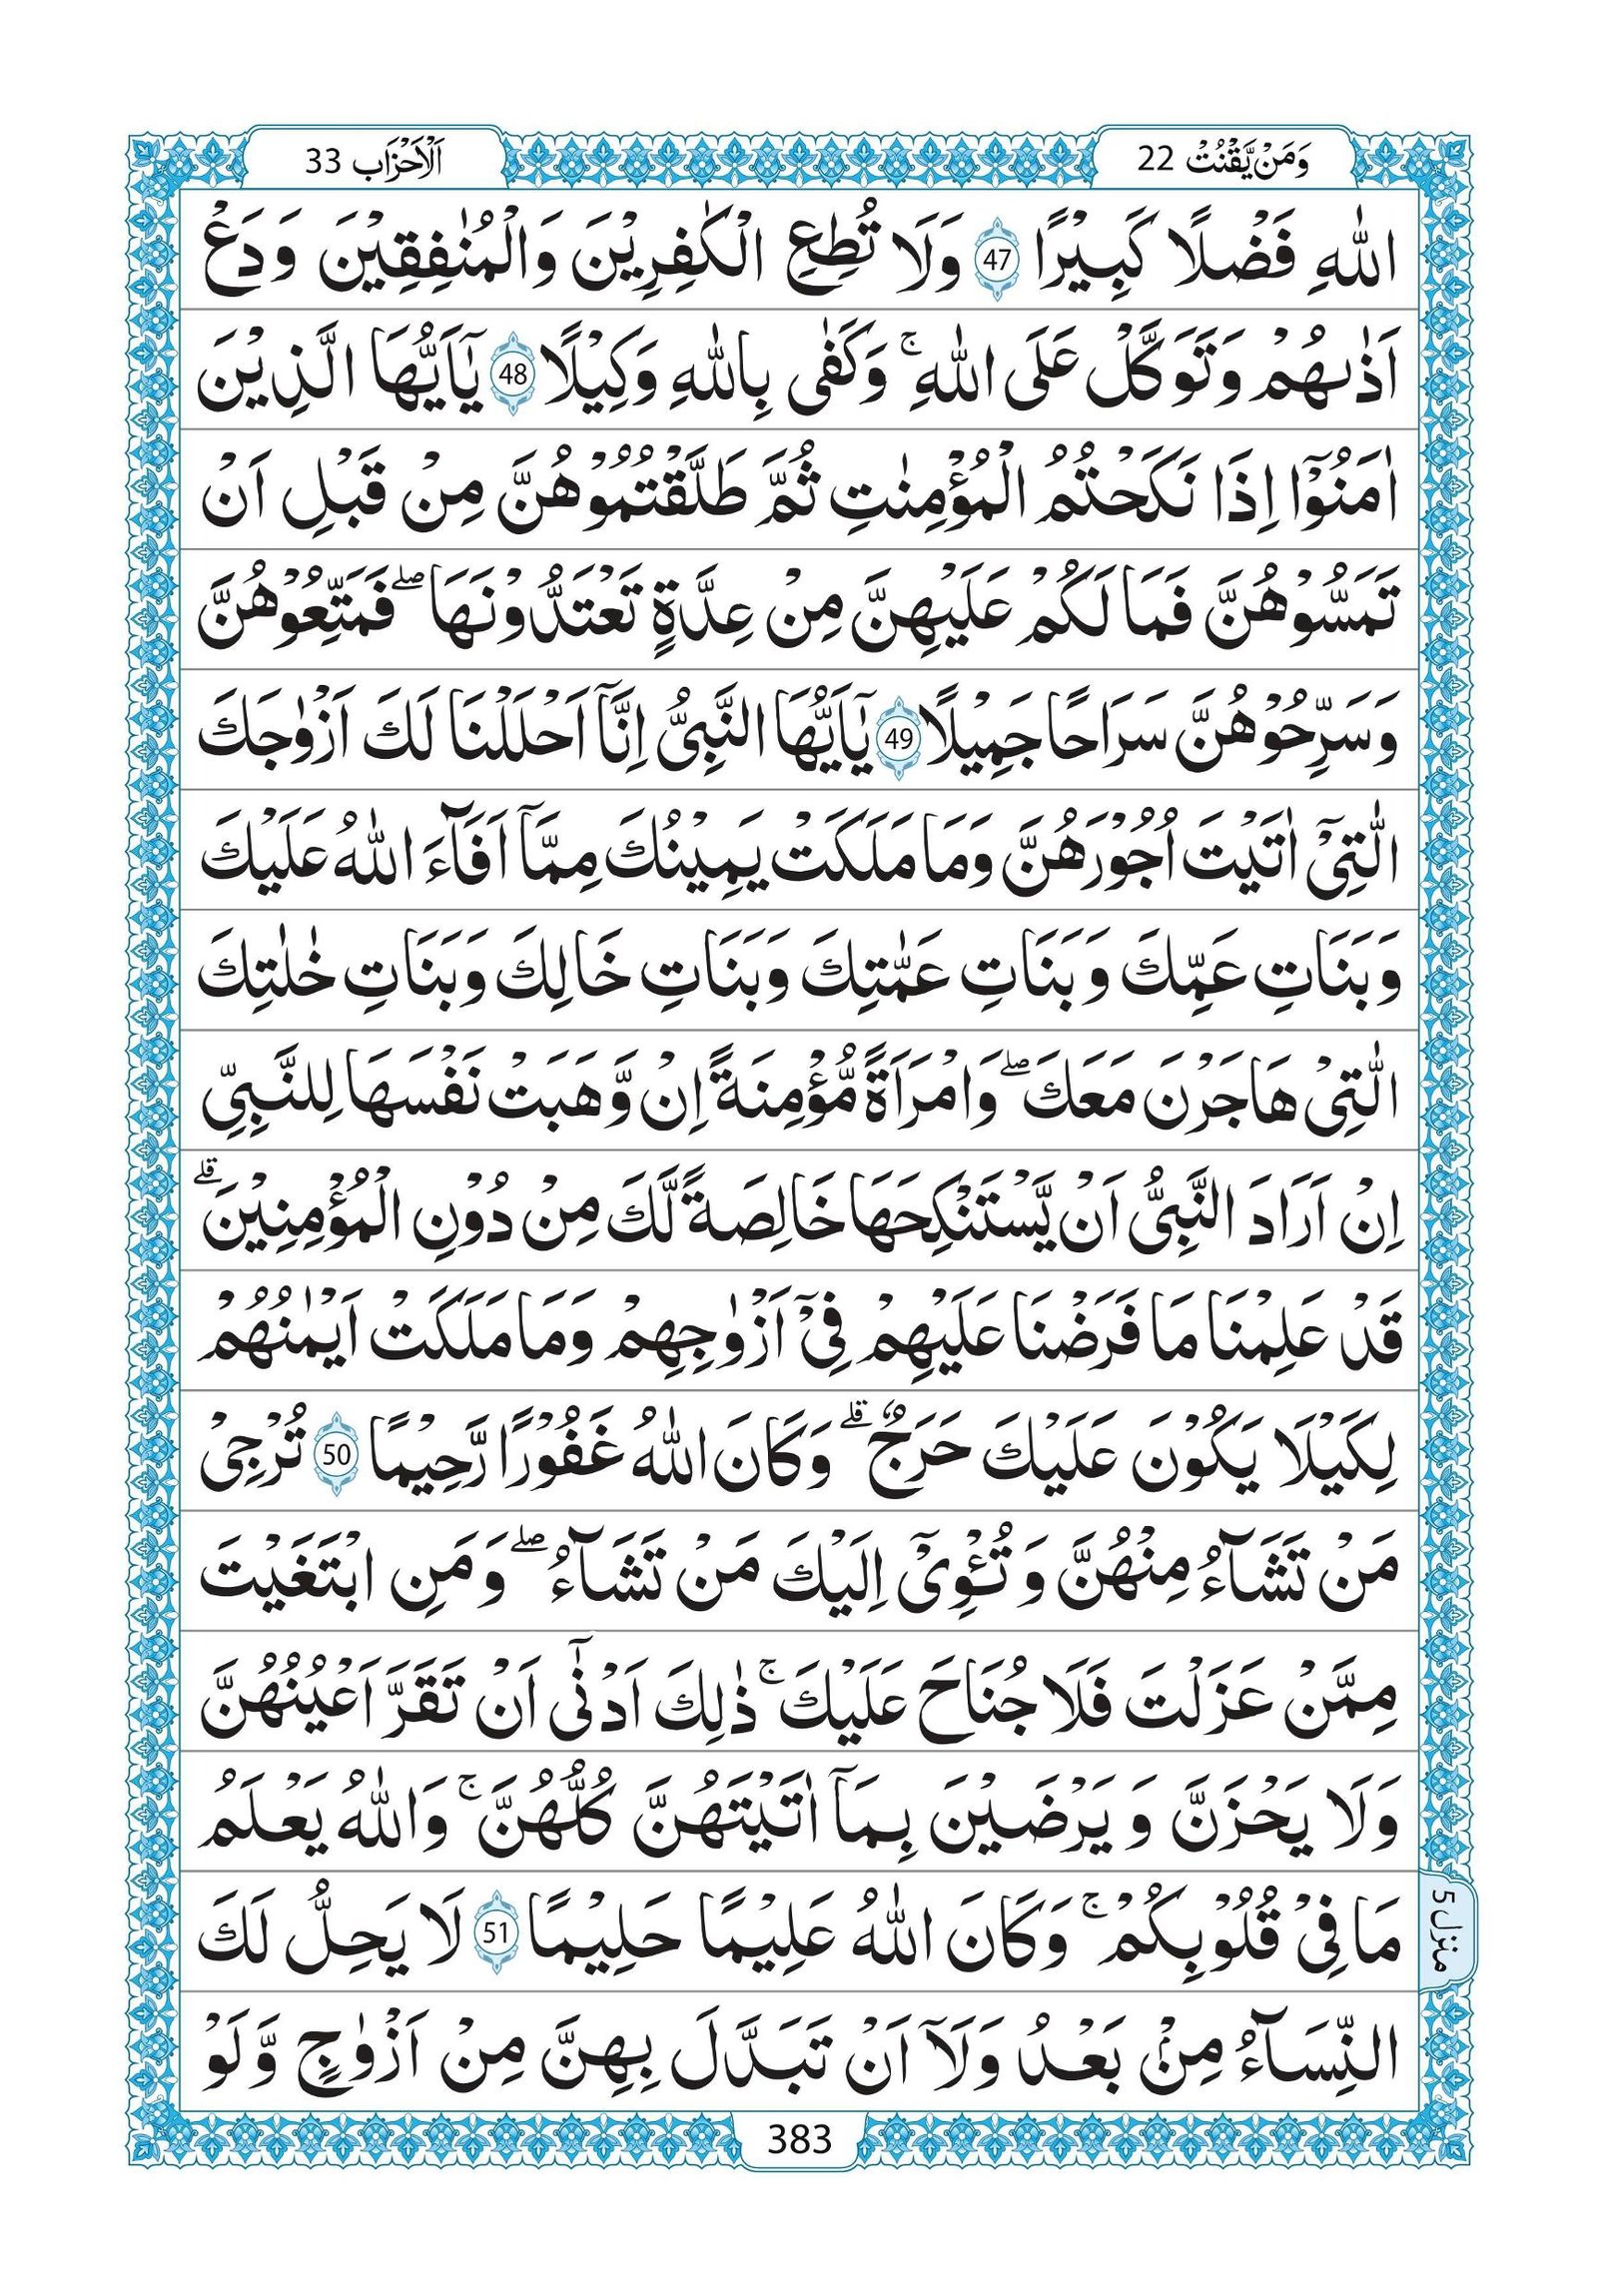 وَمَنْ یَّقْنُتْ 22
اَلْاَحْزَاب 33
اللّٰهِ فَضْلًا كَبِيْرًا 47 وَلَا تُطِعِ الْكٰفِرِيْنَ وَالْمُنٰفِقِيْنَ وَدَعْ
اَذٰىهُمْ وَتَوَكَّلْ عَلَى اللّٰهِ ۚ وَكَفٰى بِاللّٰهِ وَكِيْلًا 48 يٰٓاَيُّهَا الَّذِيْنَ
اٰمَنُوْٓا اِذَا نَكَحْتُمُ الْمُؤْمِنٰتِ ثُمَّ طَلَّقْتُمُوْهُنَّ مِنْ قَبْلِ اَنْ
تَمَسُّوْهُنَّ فَمَا لَكُمْ عَلَيْهِنَّ مِنْ عِدَّةٍ تَعْتَدُّوْنَهَا ۖ فَمَتِّعُوْهُنَّ
وَسَرِّحُوْهُنَّ سَرَاحًا جَمِيْلًا 49 يٰٓاَيُّهَا النَّبِىُّ اِنَّآ اَحْلَلْنَا لَكَ اَزْوٰجَكَ
الّٰتِىْٓ اٰتَيْتَ اُجُوْرَهُنَّ وَمَا مَلَكَتْ يَمِيْنُكَ مِمَّآ اَفَآءَ اللّٰهُ عَلَيْكَ
وَبَنَاتِ عَمِّكَ وَبَنَاتِ عَمّٰتِكَ وَبَنَاتِ خَالِكَ وَبَنَاتِ خٰلٰتِكَ
الّٰتِىْ هَاجَرْنَ مَعَكَ ۖ وَامْرَاَةً مُّؤْمِنَةً اِنْ وَّهَبَتْ نَفْسَهَا لِلنَّبِىِّ
اِنْ اَرَادَ النَّبِىُّ اَنْ يَّسْتَنْكِحَهَا خَالِصَةً لَّكَ مِنْ دُوْنِ الْمُؤْمِنِيْنَ ۗ
قَدْ عَلِمْنَا مَا فَرَضْنَا عَلَيْهِمْ فِىْٓ اَزْوٰجِهِمْ وَمَا مَلَكَتْ اَيْمٰنُهُمْ
لِكَيْلَا يَكُوْنَ عَلَيْكَ حَرَجٌ ۗ وَكَانَ اللّٰهُ غَفُوْرًا رَّحِيْمًا 50 تُرْجِىْ
مَنْ تَشَآءُ مِنْهُنَّ وَتُـْٔوِىْٓ اِلَيْكَ مَنْ تَشَآءُ ۖ وَمَنِ ابْتَغَيْتَ
مِمَّنْ عَزَلْتَ فَلَا جُنَاحَ عَلَيْكَ ۚ ذٰلِكَ اَدْنٰٓى اَنْ تَقَرَّ اَعْيُنُهُنَّ
وَلَا يَحْزَنَّ وَيَرْضَيْنَ بِمَآ اٰتَيْتَهُنَّ كُلُّهُنَّ ۚ وَاللّٰهُ يَعْلَمُ
مَا فِىْ قُلُوْبِكُمْ ۚ وَكَانَ اللّٰهُ عَلِيْمًا حَلِيْمًا 51 لَا يَحِلُّ لَكَ
النِّسَآءُ مِنْۢ بَعْدُ وَلَآ اَنْ تَبَدَّلَ بِهِنَّ مِنْ اَزْوٰجٍ وَّلَوْ
منزل 5
383